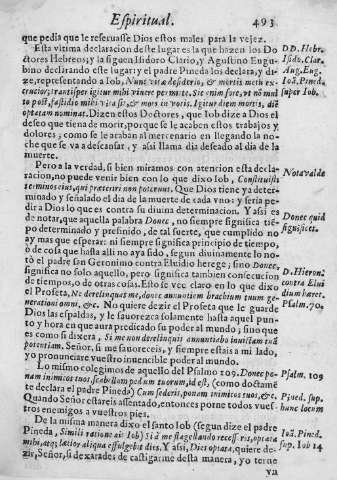 Espiritual. 493
que pedia que le reseruasse Dios estos males para la vejez.
Esta vltima declaracion deste lugar es la que hazen los Do-
ctores Hebreos; y la siguen Isidoro Clario, y Agustino Eugu-
bino declarando este lugar; y el padre Pineda los declara, y di-
ze, refiriendo a Iob, Nunc vitæ desiderio, & mortis metu ex-
crucior; transfer igitur mihi vivere per mitte. Sic enim fore, vt nō mul
to post, fastidio mihi vita sit, & mors in voris. Igitur diem mortis, diē
optatam nominat. Dizen estos Doctores, que Iob dize a Dios el
deseo que tiena de morir, porque se le acaben estos trabajos y
dolores; como se le acaban al mercenario en llegando la no-
che que se va a descansar, y assi llama dia deseado al dia de la
muerte.
Pero a la verdad, si bien miramos con atention esta decla-
racion, no puede venir bien con lo que dixo Iob, Constituisti
terminos eius, qui præteriri non poterunt. Que Dios tiene ya deter-
minado y señalado el dia de la muerte de cada vno: y seria pe-
dir a Dio lo que es contra su diuina determinacion. Y assi es
de notar, que aquella palabra Donec, no siempre significa tiē-
po determinado y prefinido, de tal suerte, que cumplido no
ay mas que esperar: ni siempre significa principio de tiempo,
ò de cosa que hasta alli no aya sido, segun diuinamente lo no-
tò el padre san Geronimo contra Eluidio herege; sino Donec,
significa no solo aquello, pero significa tambien consecucion
de tiempos, o de otras cosas. Esto se vee claro en lo que dixo
el Profeta, Ne derelinquas me, donec annuntiem brachium tuum ge-
nerationi omni, &c. No quiere dezir el Profeta que le guarde
Dios las espaldas, y le fauorezca solamente hasta aquel pun-
to y hora en que aura predicado su poder al mundo; sino que
es como si dixera, Si me non derelinquis annuntiabo inuictam tuā
potentiam. Señor, si me fauoreceis, y siempre estais a mi lado,
yo pronunciare vuestro inuencible poder al mundo.
Lo mismo colegimos de aquello del Psalmo 109. Donec po-
nam inimicos tuos, scabellum pedum tuorum, id est, (como doctamē
te declara el padre Pineda) Cum sederis, ponam inimicos tuos, &c.
Quando Señor estareis assentado, entonces porne todos vues-
tros enemigos a vuestros pies.
De la misma manera dixo el santo Iob (segun dize el padre
Pineda, Simili ratione ait Iob) Si à me flagellando recesseris, optata
mihi, atq; lætior aliqua effulgebit dies. Y assi, Dies optata, quiere de-
zir, Señor, si dexarades de castigarme desta manera, yo terne
vn
D D. Hebr.
Isido. Clar.
Aug. Eug.
Ioā. Pineda
sup. Iob.
Nota valde
Donec quid
significet.
D. Hieron.
contra Elui
dium hæret.
Psalm. 70.
Psalm. 109
Pined. sup.
hunc locum
Ioā. Pined.
sup. Iob 14